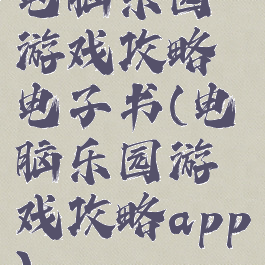 电脑乐园
游戏攻略
电子书(电
脑乐园游
戏攻略app
)